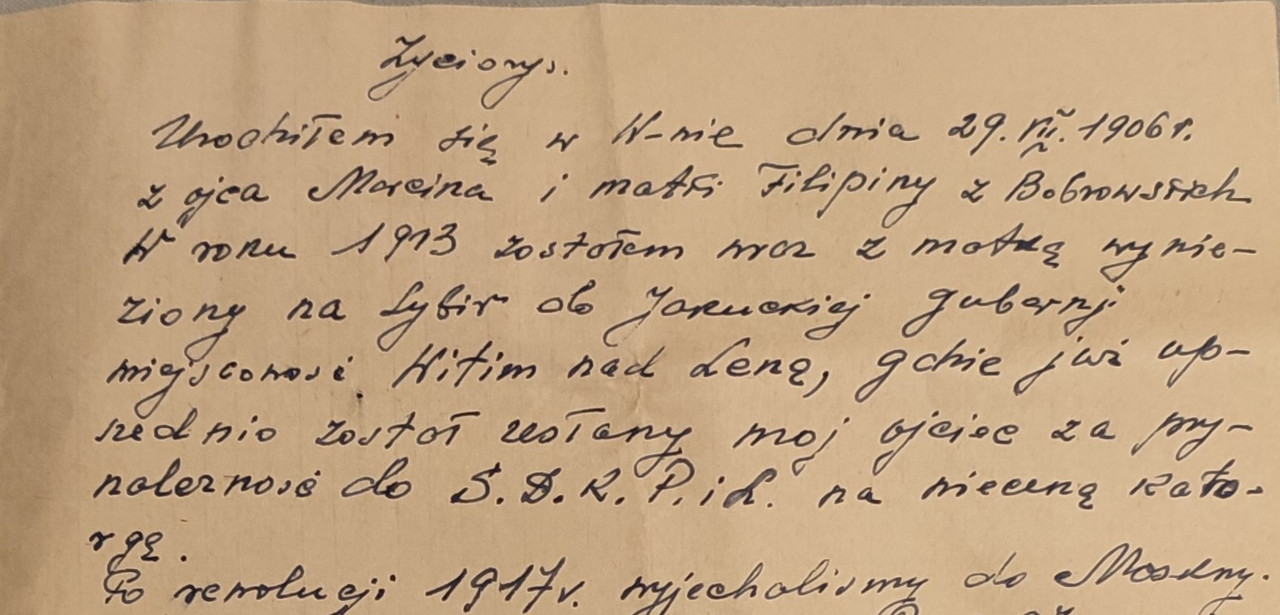 Życiorys.
Urodziłem się w W-nie dnia 29.VII.1906 r.
z ojca Marcina i matki Filipiny z Bobrowskich
W roku 1913 zostałem wraz z matką wywie-
ziony na Sybir do Jakuckiej gubernji
miejscowość Witim nad Leną, gdzie już up-
rzednio został zesłany mój ojciec za przy-
należność do S.D.K.P.i L. na wieczną kato-
rgę.
Po rewolucji 1917 r. wyjechaliśmy do Moskwy.